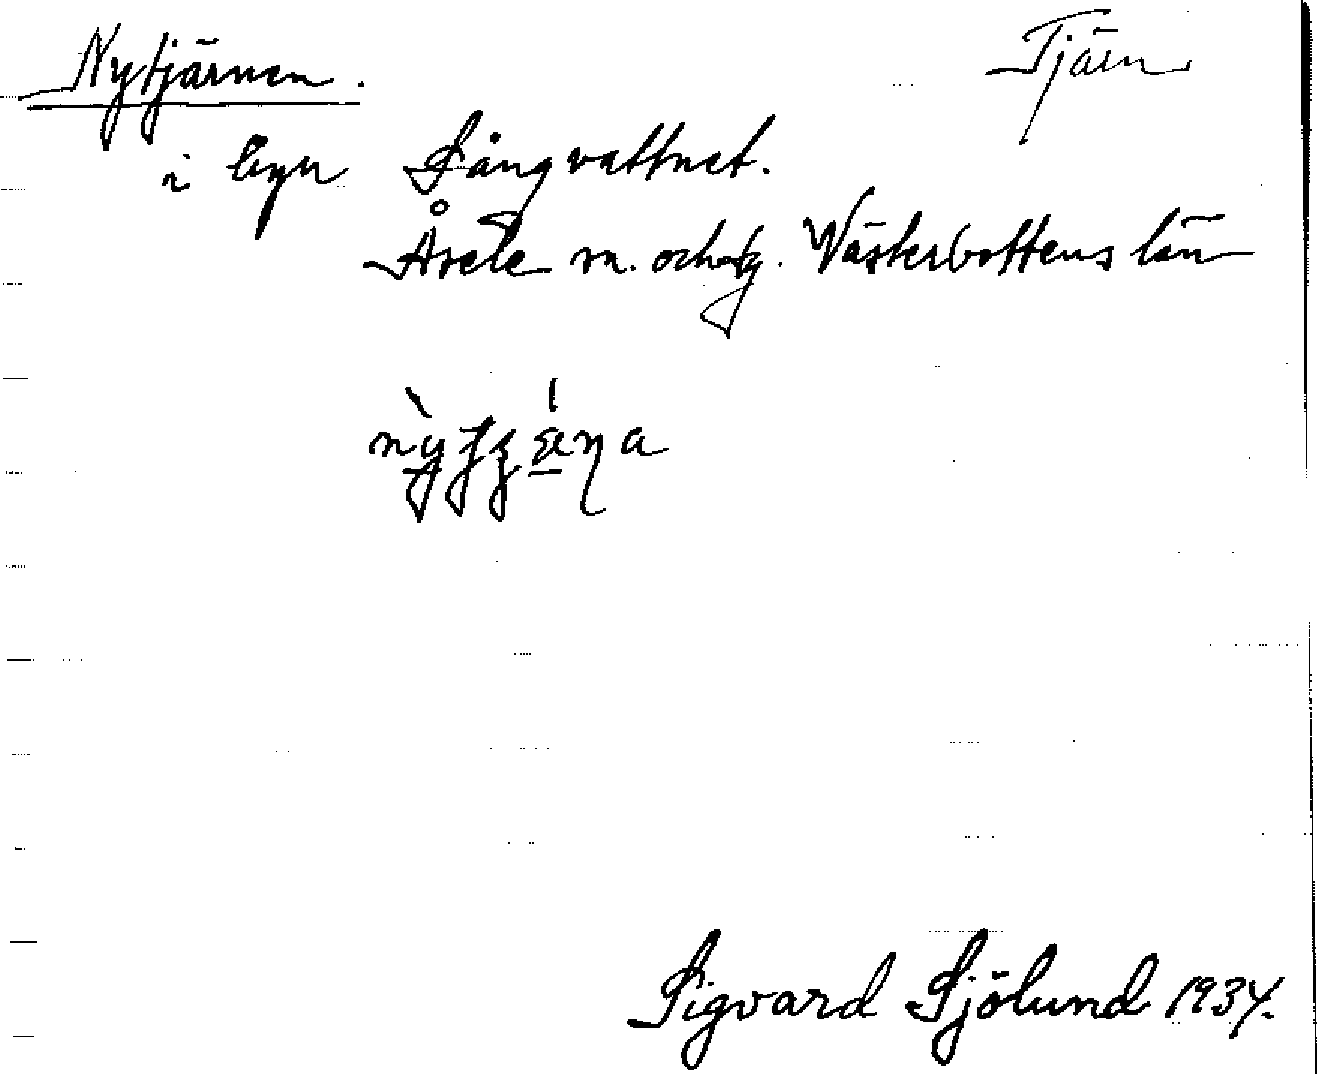 Nytjärnen. Tjärn
i byn Långvattnet.
Åsele sn. och lg. Västerbottens län
Sigvard Sjölund 1934.